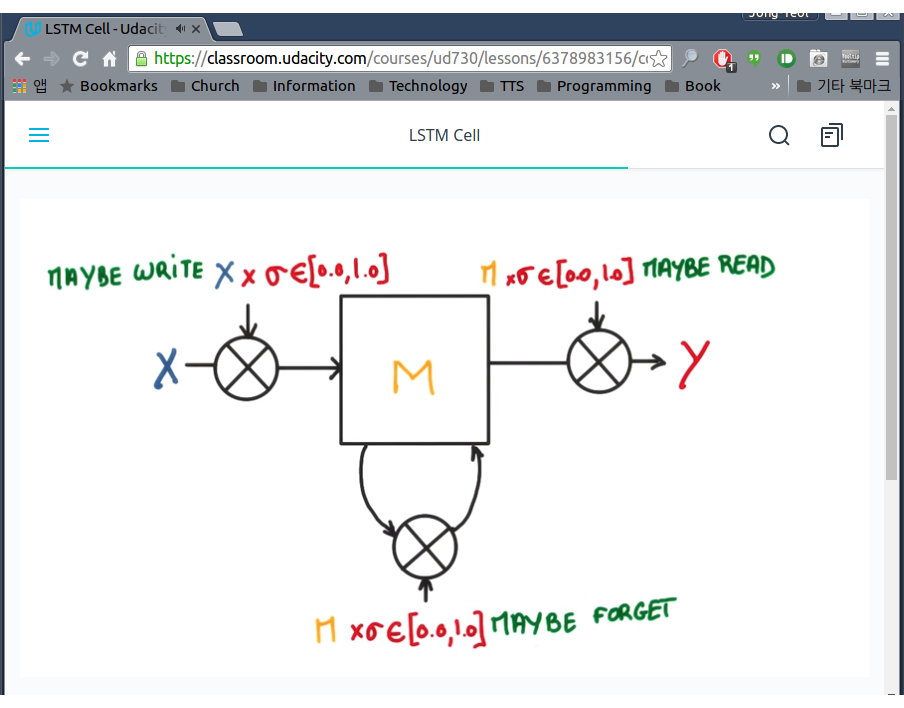 LSTM Cell - Udacit
https://classroom.udacity.com/courses/ud730/lessons/6378983156/c
앱 Bookmarks Church Information Technology TTS Programming Book » 기타 북마크
LSTM Cell
MAYBE WRITE X x σ∈[0.0,1.0]
M xσ∈[0.0,1.0] MAYBE READ
X
M
Y
M xσ∈[0.0,1.0] MAYBE FORGET